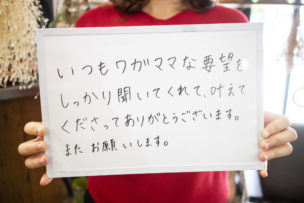 いつもワガママな要望も
しっかり聞いてくれて、叶えて
くださってありがとうございます。
また お願いします。